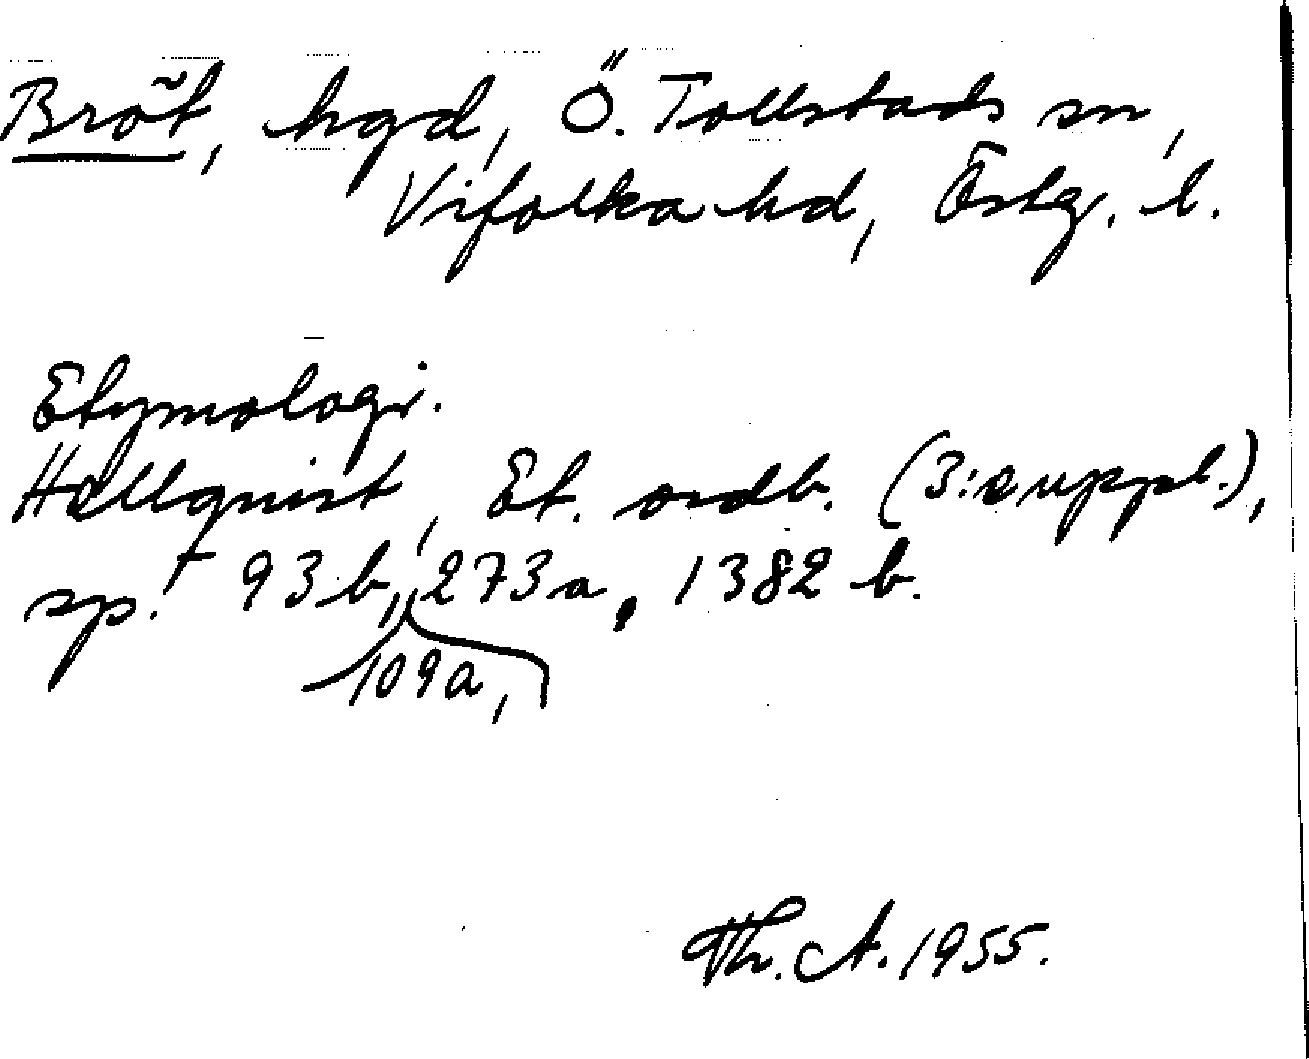 Bröt, hgd, Ö. Tollstads sn,
Vifolka hd, Östg. l.
Etymologi.
Hellquist, Et. ordb. (3:e uppl.),
sp. 93 b, 109 a, 273 a, 1382 b.
Th. A. 1955.